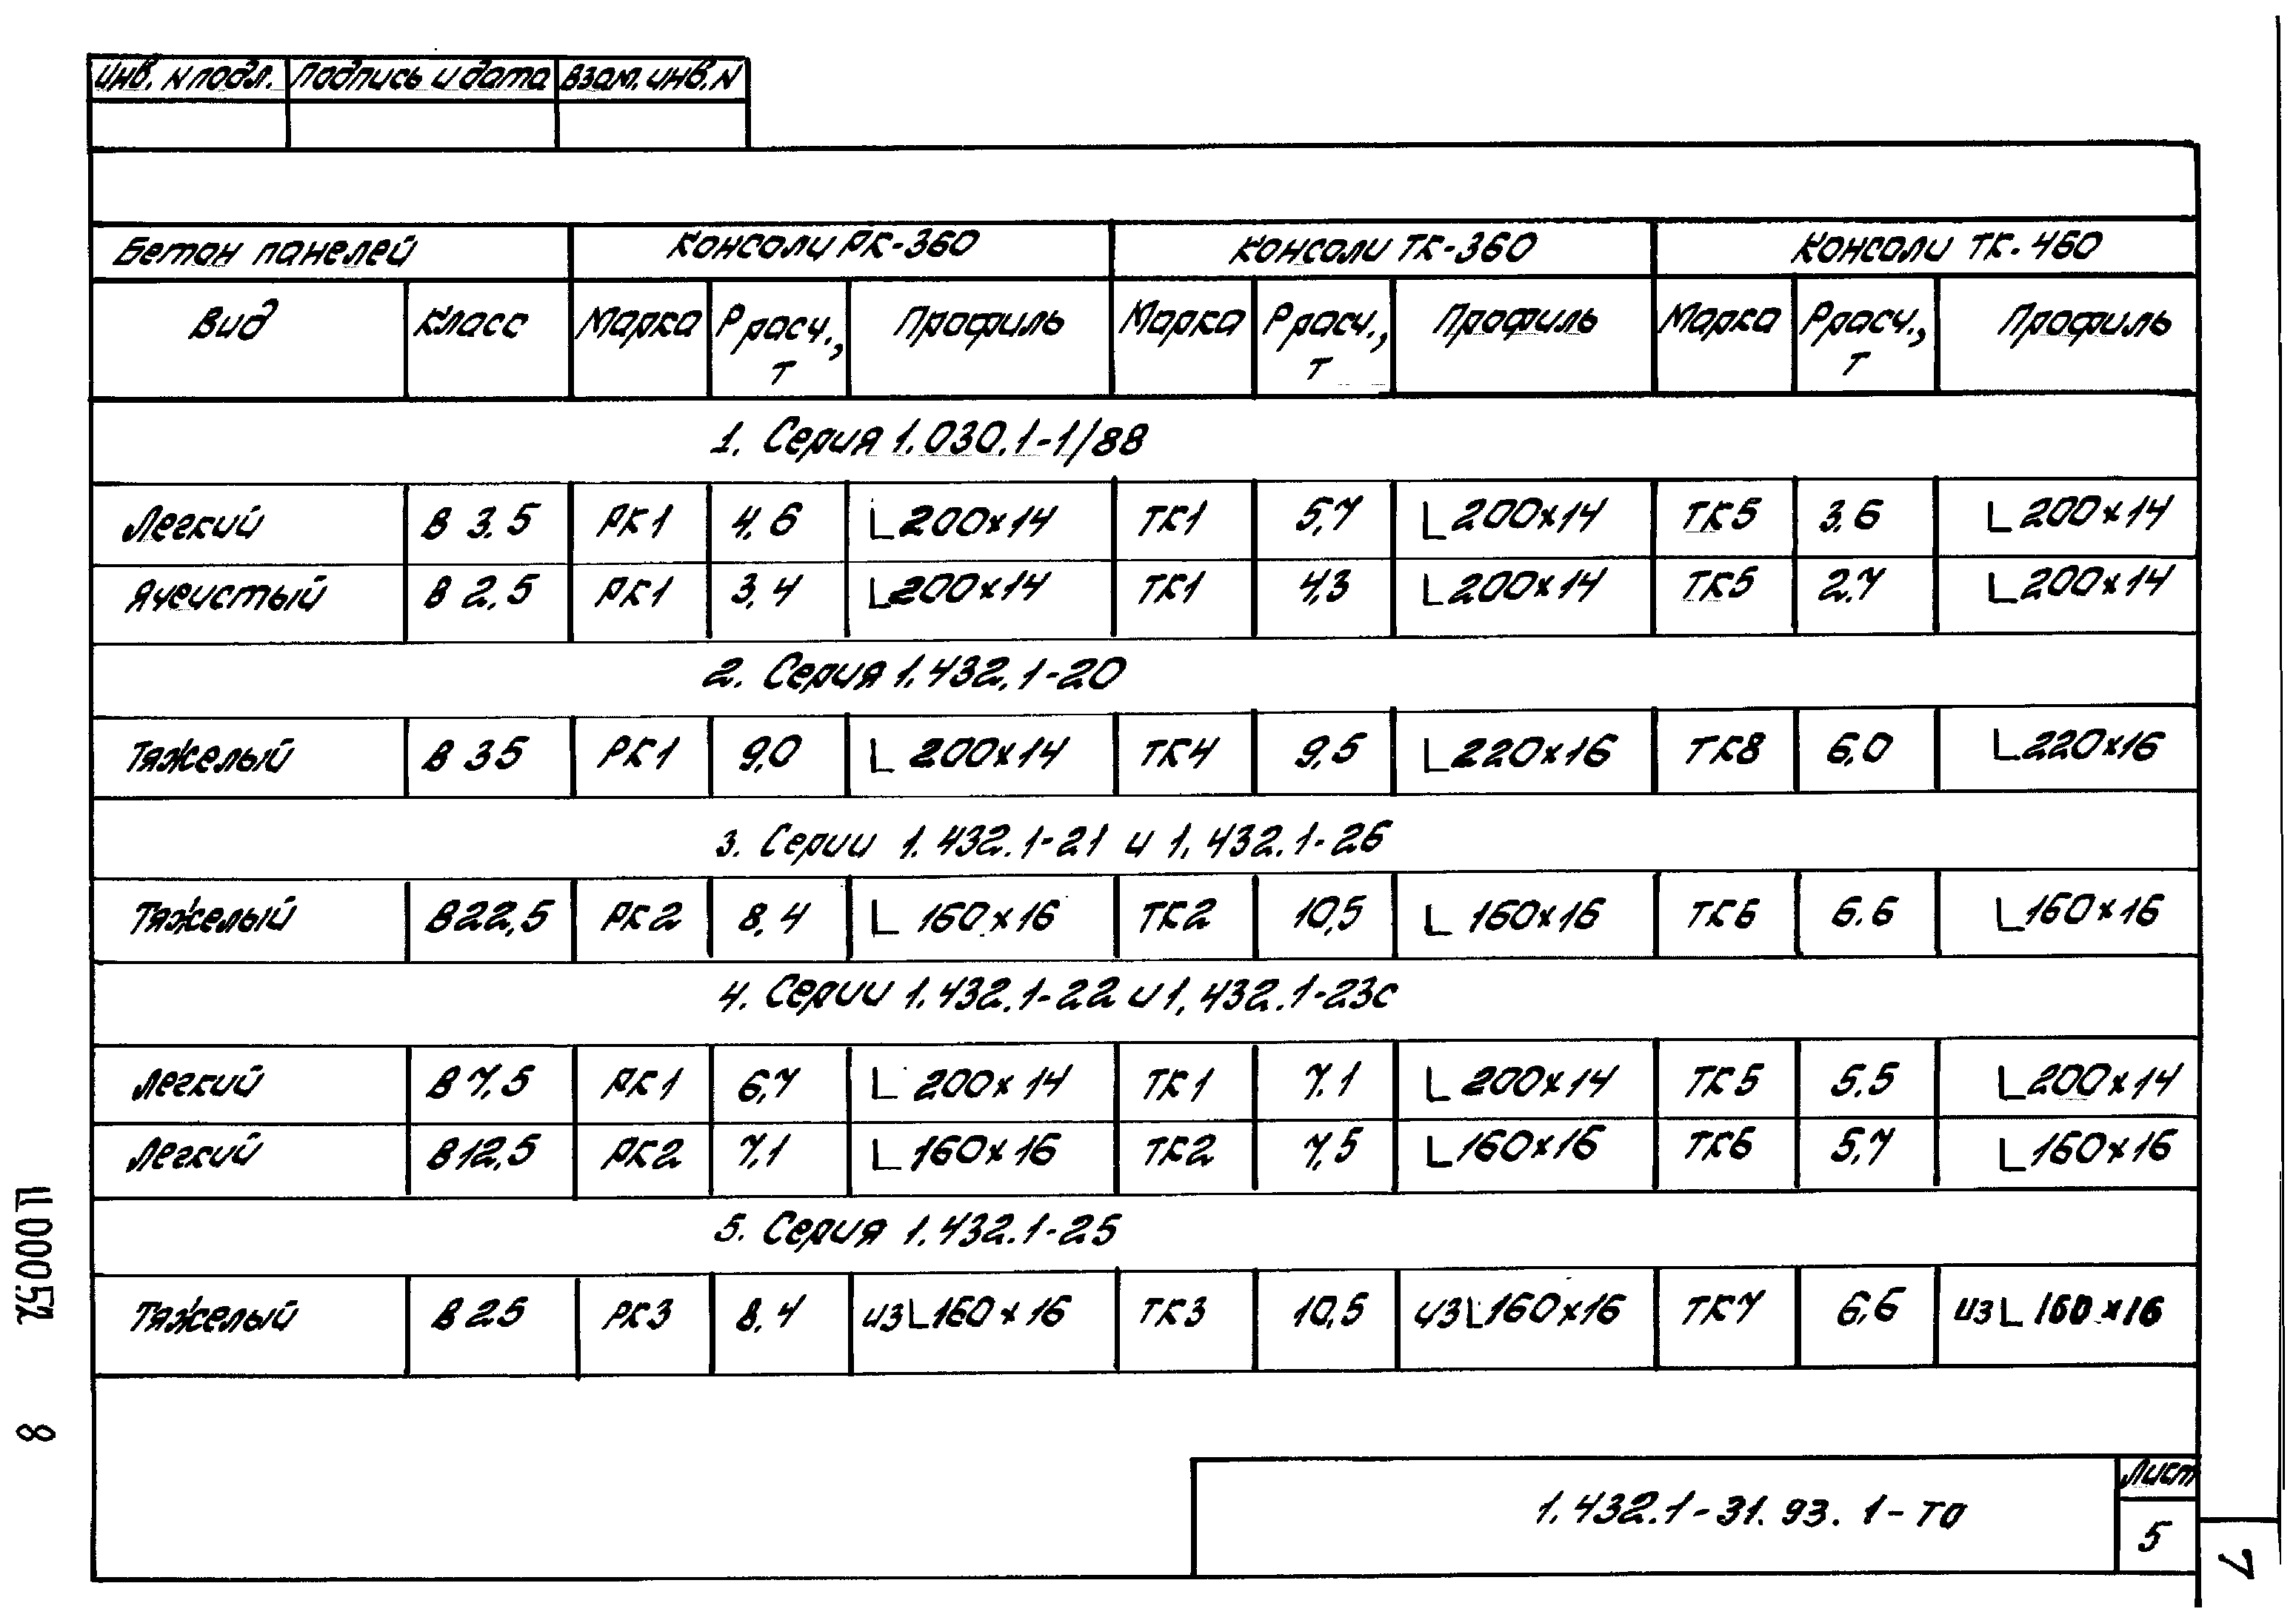 Инв. N подл. Подпись и дата Взам. инв. N
Бетон панелей Консоли РК-360 Консоли ТК-360 Консоли ТК-460
Вид Класс Марка Ррасч., т Профиль Марка Ррасч., т Профиль Марка Ррасч., т Профиль
1. Серия 1.030.1-1/88
Легкий В 3,5 РК1 4,6 L 200х14 ТК1 5,7 L 200х14 ТК5 3,6 L 200х14
Ячеистый В 2,5 РК1 3,4 L 200х14 ТК1 4,3 L 200х14 ТК5 2,7 L 200х14
2. Серия 1.432.1-20
Тяжелый В 35 РК1 9,0 L 200х14 ТК4 9,5 L 220х16 ТК8 6,0 L 220х16
3. Серии 1.432.1-21 и 1.432.1-26
Тяжелый В22,5 РК2 8,4 L 160х16 ТК2 10,5 L 160х16 ТК6 6.6 L 160х16
4. Серии 1.432.1-22 и 1.432.1-23с
Легкий В 7,5 РК1 6,7 L 200х14 ТК1 7.1 L 200х14 ТК5 5.5 L 200х14
Легкий В12,5 РК2 7,1 L 160х16 ТК2 7,5 L 160х16 ТК6 5,7 L 160х16
5. Серия 1.432.1-25
Тяжелый В 25 РК3 8,4 из L 160х16 ТК3 10,5 из L 160х16 ТК7 6,6 из L 160х16
1.432.1-31.93.1-ТО
Лист
5
7
Ц00052 8